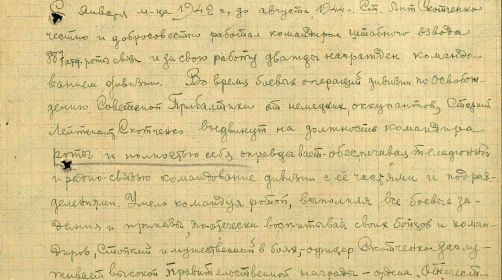 С января м-ца 1942 г. до августа 1944 г. Ст. Л-нт Скотченко
честно и добросовестно работал командиром штабного взвода
887 отд. роты связи и за свою работу дважды награжден командо-
ванием дивизии. Во время боевых операций дивизии по освобож-
дению Советской Прибалтики от немецких оккупантов, Старший
Лейтенант Скотченко выдвинут на должность командира
роты и полностью себя оправдывает обеспечивая телефонной
и радио-связью командование дивизии с её частями и подраз-
делениями. Умело командуя ротой, выполняя все боевые за-
дания и приказы, по-отечески воспитывая своих бойцов и коман-
диров, стойкий и мужественный в боях, офицер Скотченко заслу-
живает высокой правительственной награды - ордена "Отечест-